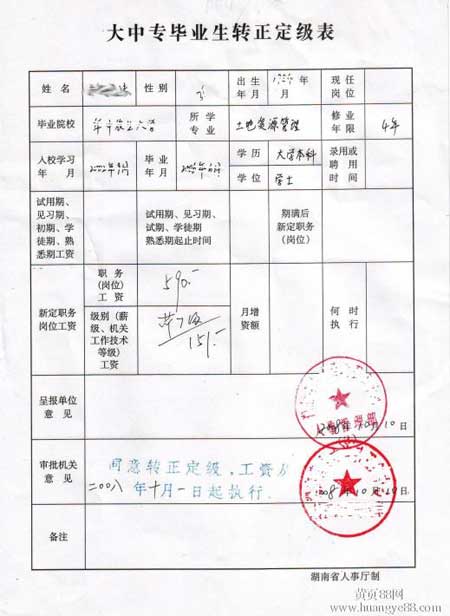 大中专毕业生转正定级表
姓 名 性别 出生年月 年 月 现任岗位
毕业院校 所学专业 土地资源管理 修业年限 4年
入校学习年月 毕业年月 学历 大学本科 录用或聘用时间
学位 学士
试用期、见习期、初期、学徒期、熟悉期工资 试用期、见习期、试期、学徒期熟悉期起止时间 期满后新定职务(岗位)
新定职务岗位工资 职务(岗位)工资 590.- 月增资额 何时执行
级别(薪级、机关工作技术等级)工资 151.-
呈报单位意见 2008年10月10日
审批机关意见 同意转正定级,工资从
二00八年十月一日起执行. 2008年10月10日
备注
湖南省人事厅制
黄页88网
www.huangye88.com